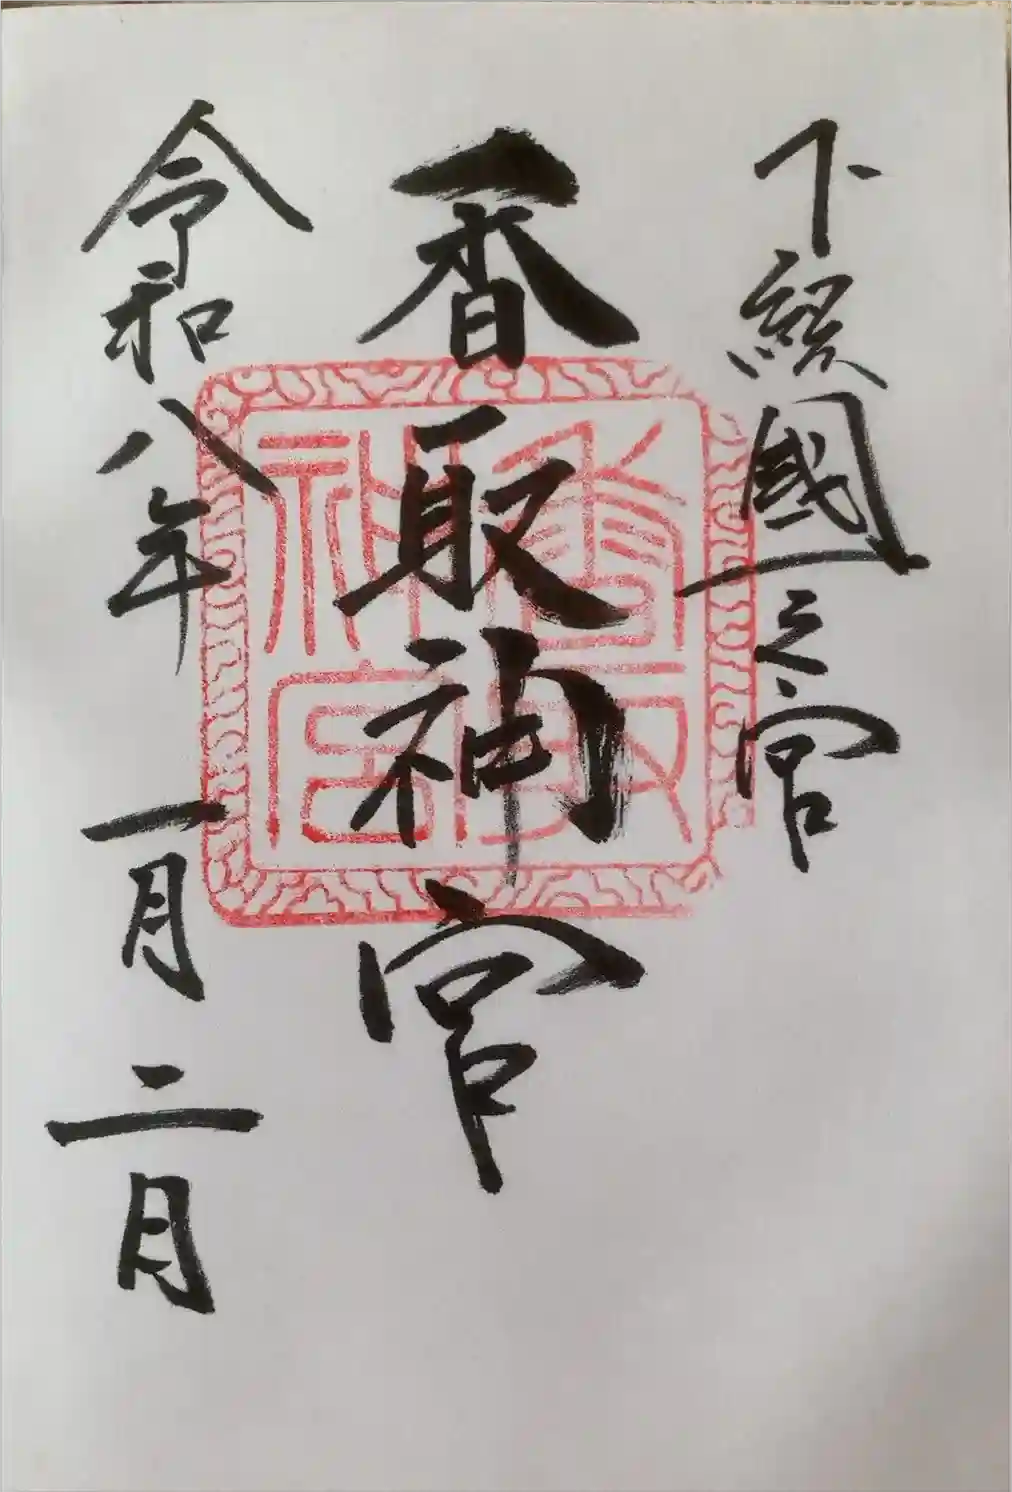 下總國一之宮
香取神宮
令和八年一月二日
香取神宮